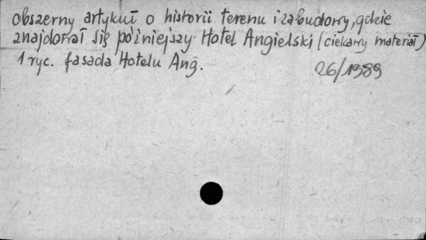 obszerny artykuł o historii terenu i zabudowy, gdzie
znajdował się późniejszy Hotel Angielski (ciekawy materiał)
1 ryc. fasada Hotelu Ang.
26/1989